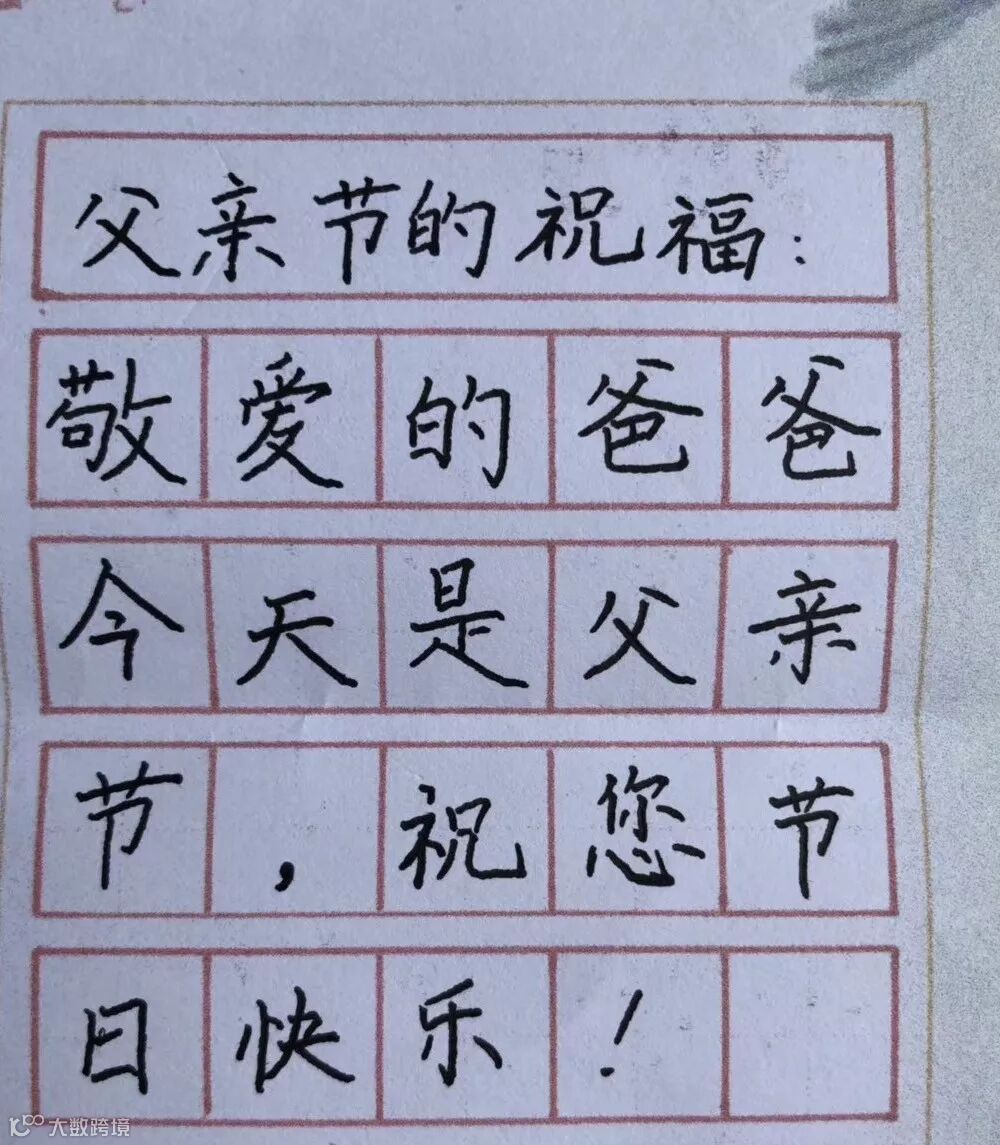 父亲节的祝福:
敬爱的爸爸
今天是父亲
节,祝您节
日快乐!
大数跨境